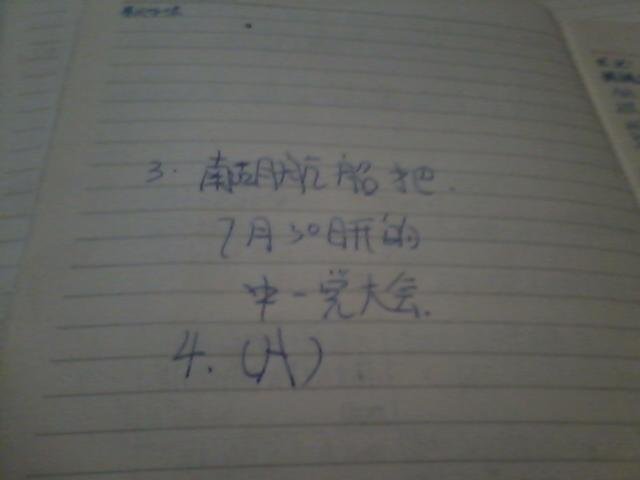 3. 南湖航船把.
7月30日开的
中一党大会.
4. (A)